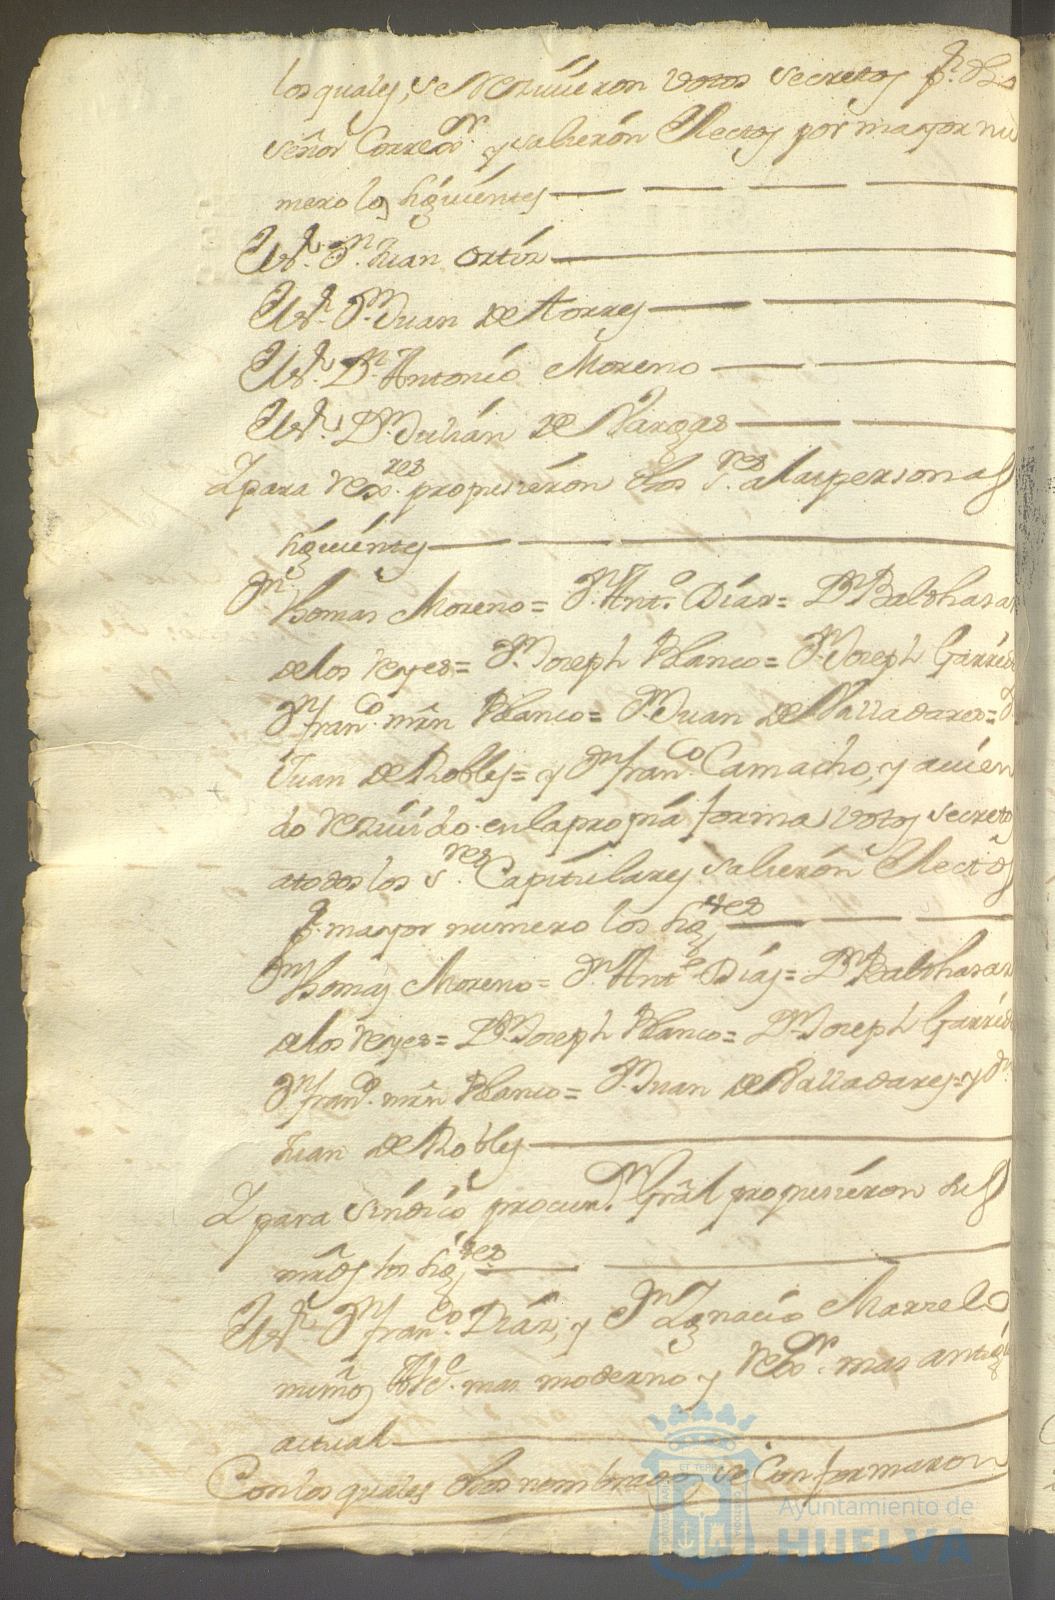 los quales, se Reziuieron votos secretos pr. dho
señor Correxr. y salieron Electos por mayor nu
mero los siguientes
D. Juan Ortiz
Dn. Juan de Torres
Dn. Antonio Moreno
Dn. Julián de Vargas
Y para Rexres. propusieron dhos Sres. a las personas
siguientes
Dn. Thomas Moreno = Dn. Anto. Díaz = Dn. Balthasar
de los Reyes = Dn. Joseph Blanco = Dn. Joseph Garrido
Dn. franco. mrn Blanco = Dn. Juan de Valladares = Dn.
Juan de Robles = y Dn. franco. Camacho, y auien
do Reziuido en la propia forma votos secretos
a todos los Sres. Capitulares salieron Electos
pr. mayor numero los sigtes
Dn. Thomas Moreno = Dn. Anto. Días = Dn. Balthasar
de los Reyes = Dn. Joseph Blanco = Dn. Joseph Garrido
Dn. franco. mrn Blanco = Dn. Juan de Valladares = y Dn.
Juan de Robles
Y para síndico procurr. Gral propusieron dhs
los sigtes
Dn. franco. Díaz, y Dn. Ignacio Marselo
mas moderno y Rexr. mas antigu
actual
Con los quales dhos nombrados se Conformaron
Ayuntamiento de
HUELVA